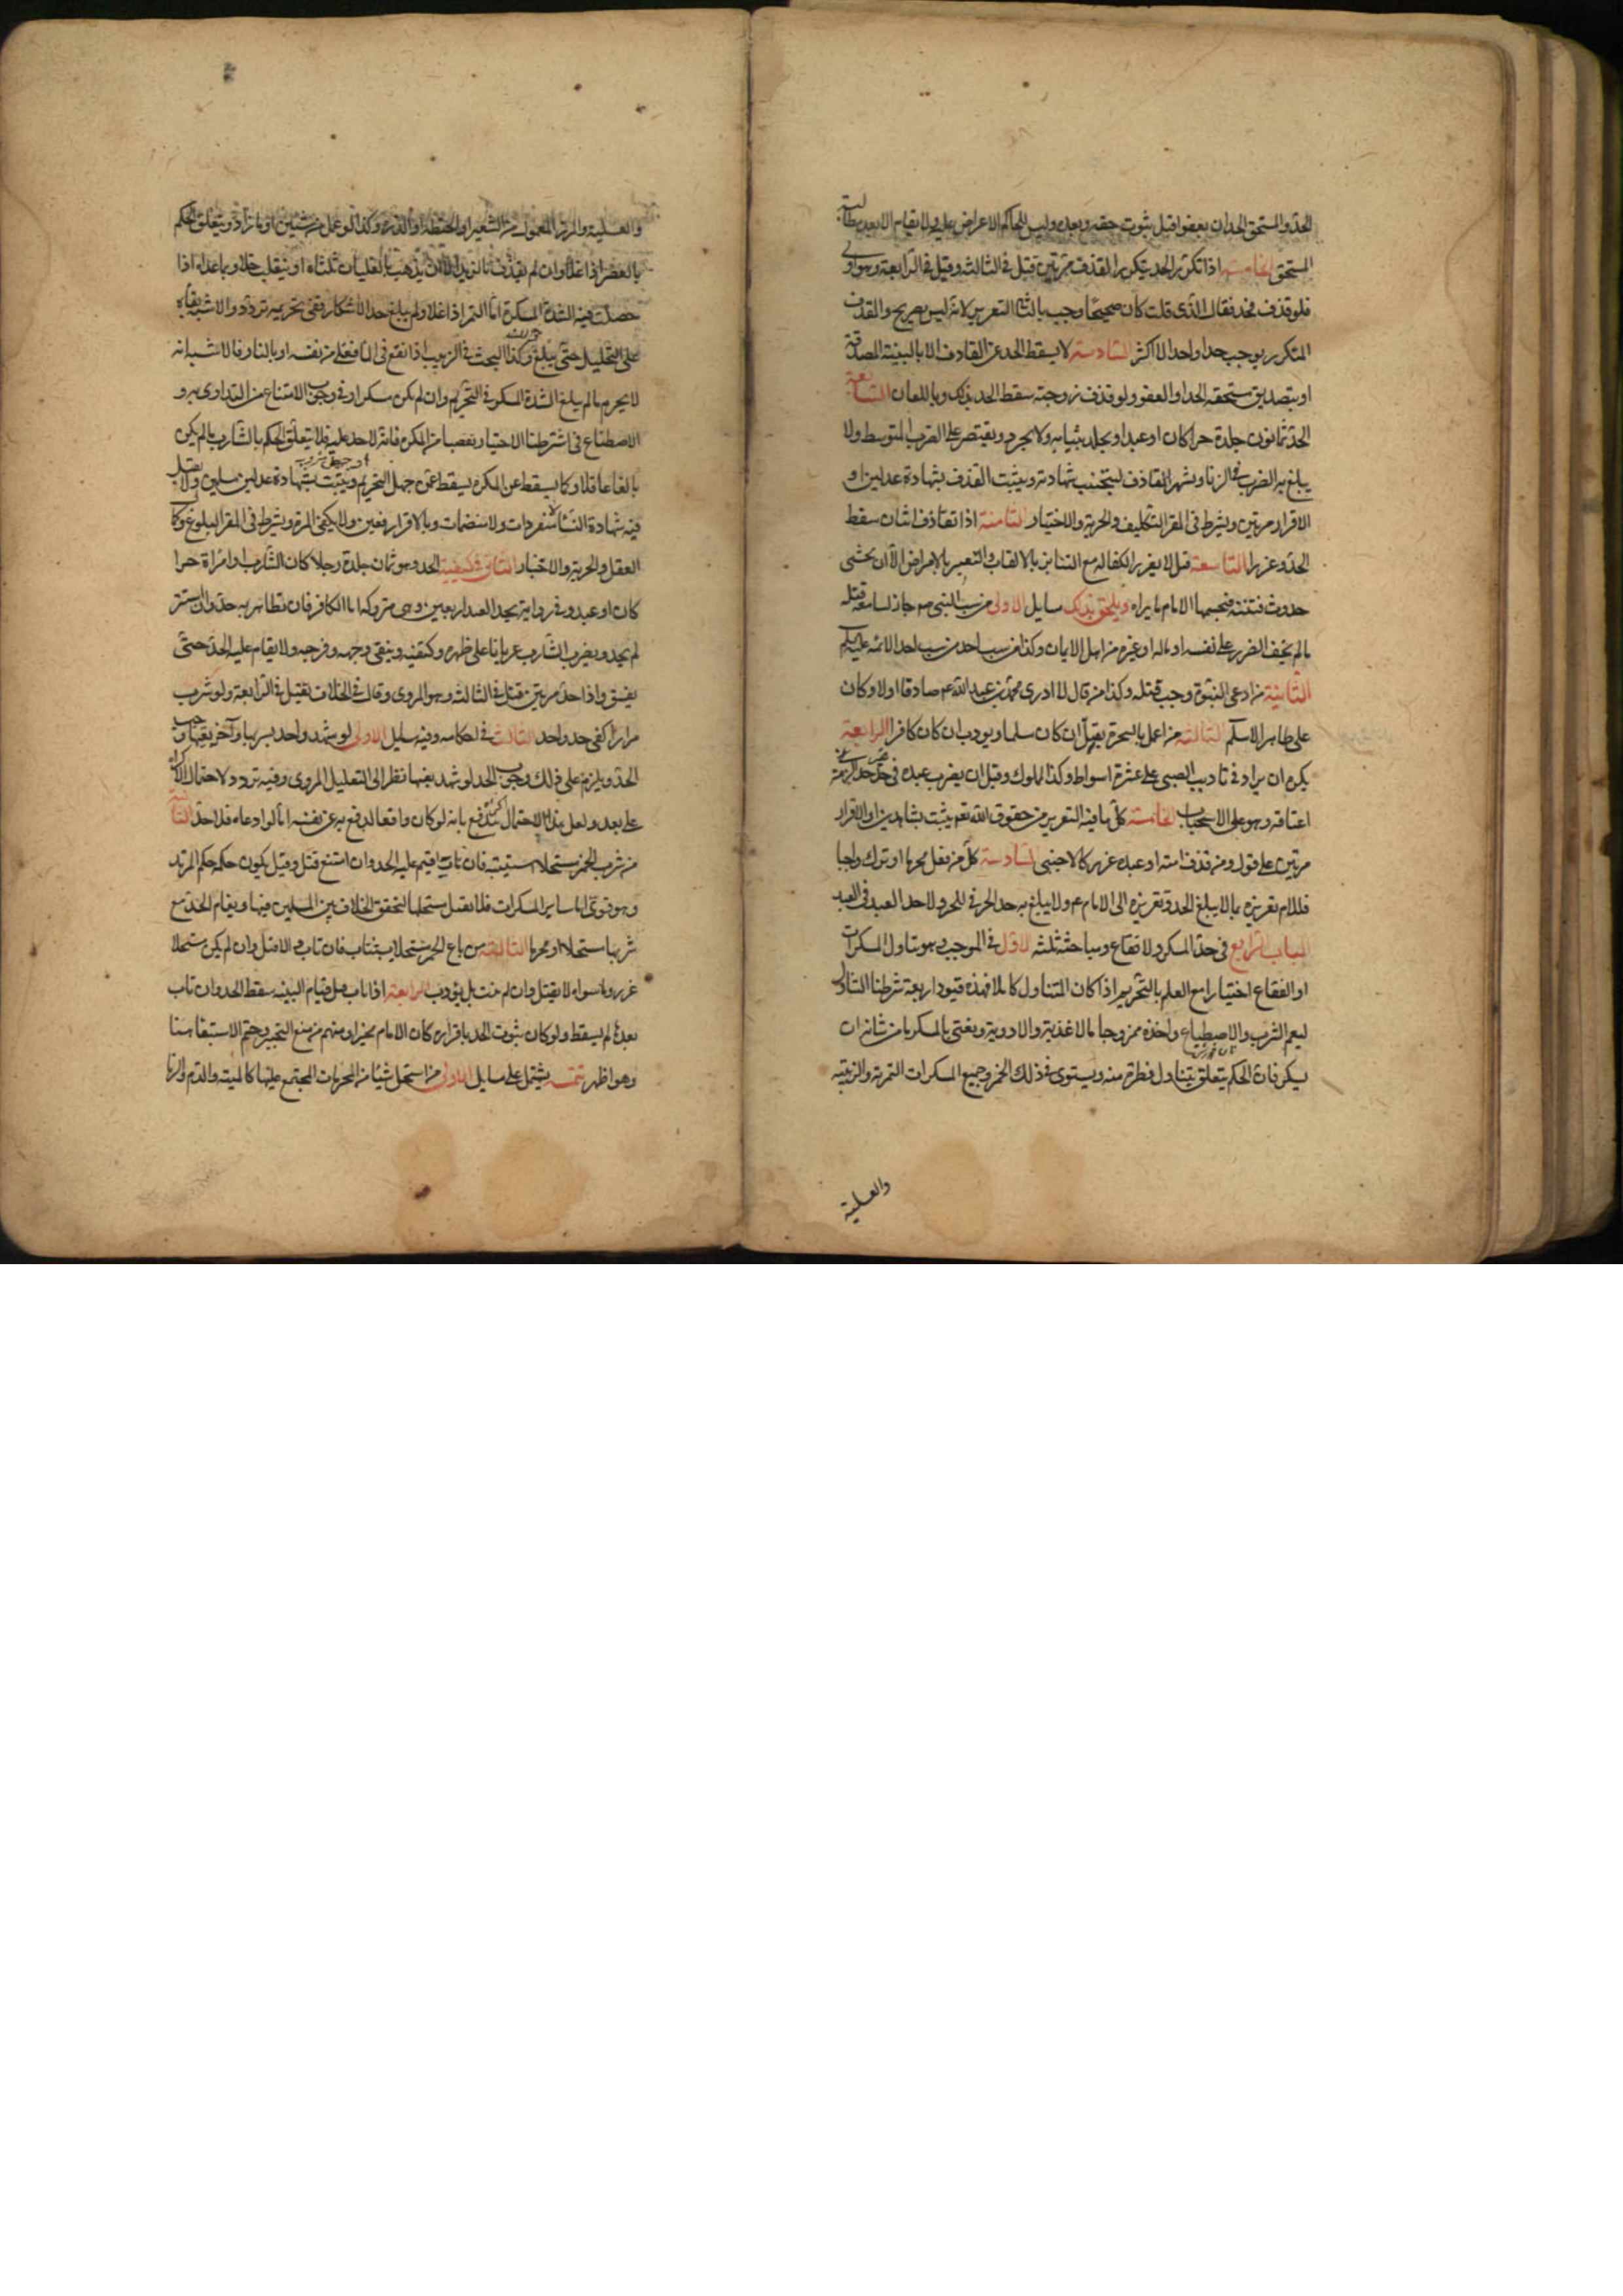 الحدّ والمستحق الحد ان يعفوا قبل ثبوت حقه وبعده وليس للحاكم الاعراض عليه ولا يقام الا بعد مطالبة
المستحق الخامسة اذا تكرر الحد بتكرر القذف مرتين قتل في الثالثة وقيل في الرابعة وهو اولى
فلو قذف فحد فقال الذي قلت كان صحيحا وجب بالثاني التعزير لانه ليس بصريح والقذف
المتكرر يوجب حدا واحدا لا اكثر السادسة لا يسقط الحد عن القاذف الا بالبينة المصدقة
او بتصديق مستحقه الحد او العفو ولو قذف زوجته سقط الحد بذلك وباللعان السابعة
الحد ثمانون جلدة حرا كان او عبدا ويجلد بثيابه ولا يجرد ويقتصر على الضرب المتوسط ولا
يبلغ به الضرب في الزنا ويشهر القاذف ليجتنب شهادته ويثبت القذف بشهادة عدلين او
الاقرار مرتين ويشترط في المقر التكليف والحرية والاختيار الثامنة اذا تقاذف اثنان سقط
الحد وعزرا التاسعة قيل لا يعزر الكفار مع التنابز بالالقاب والتعيير بالامراض الا ان يخشى
حدوث فتنة فيحسمها الامام بما يراه ويلحق بذلك مسايل الاولى من سب النبي ص جاز لسامعه قتله
مالم يخف الضرر على نفسه او ماله او غيره من اهل الايمان وكذا من سب احد الائمه عليهم السلم
الثانية من ادعى النبوة وجب قتله وكذا من قال لا ادري محمد بن عبد الله ع صادق او لا وكان
على ظاهر الاسلم الثالثة من اعمل بالسحر يقتل ان كان مسلما ويودب ان كان كافرا الرابعة
يكره ان يزاد في تاديب الصبي على عشرة اسواط وكذا المملوك وقيل ان يضرب عبده في غير حد حدا لزمه
اعتاقه وهو على الاستحباب الخامسة كل ما فيه التعزير من حقوق الله تعم يثبت بشاهدين او الاقرار
مرتين على قول ومن قذف امته او عبده عزر كالاجنبي السادسة كل من فعل محرما او ترك واجبا
فللامام تعزيره بما لا يبلغ الحد وتقديره الى الامام ع ولا يبلغ به حد الحر في الحر ولا حد العبد في العبد
الباب الرابع في حد المسكر والفقاع ومباحثه ثلثة الاول في الموجب وهو تناول المسكرات
او الفقاع اختيارا مع العلم بالتحريم اذا كان المتناول كاملا فهذه قيود اربعة شرطنا التناول
ليعم الشرب والاصطباغ واخذه ممزوجا بالاغذية والادوية ويعني بالمسكر ما من شانه ان
يسكر فان الحكم يتعلق بتناول قطرة منه ويستوي في ذلك الخمر وجميع المسكرات التمرية والزبيبية
والعسلية
والعسلية والمزر المعمول من الشعير او الحنطة او الذرة وكذا لو عمل من شيئين او ما زاد ويتعلق الحكم
بالعصير اذا غلا وان لم يقذف بالزبد الا ان يذهب بالغليان ثلثاه او ينقلب خلا وبما عداه اذا
حصلت فيه الشدة المسكرة اما التمر اذا غلا ولم يبلغ حد الاسكار ففي تحريمه تردد والاشبه بقاه
على التحليل حتى يبلغ وكذا البحث في الزبيب اذا نقع في الما فغلى من نفسه او بالنار فالاشبه انه
لا يحرم ما لم يبلغ الشدة المسكرة في التحريم وان لم يكن مسكرا وفي وجوب الامتناع من التداوي به و
الاصطباغ في اشترطنا الاختيار تفصيا من المكره فانه لا حد عليه فلا يتعلق الحكم بالشارب ما لم يكن
بالغا عاقلا وكما يسقط عن المكره يسقط عمن جهل التحريم او جهل مشروبه ويثبت بشهادة عدلين مسلمين ولا يقبل
فيه شهادة النسا منفردات ولا منضمات وبالاقرار دفعتين ولا يكفي المرة ويشترط في المقر البلوغ وكمال
العقل والحرية والاختيار الثاني في كيفية الحد وهو ثمانون جلدة رجلا كان الشارب او امراة حرا
كان او عبدا وفي رواية يحد العبد اربعين وهي متروكة اما الكافر فان تظاهر به حد وان استتر
لم يحد ويضرب الشارب عريانا على ظهره وكتفيه ويتقى وجهه وفرجه ولا يقام عليه الحد حتى
يفيق واذا حد مرتين قتل في الثالثة وهو المروي وقال في الخلاف يقتل في الرابعة ولو شرب
مرارا كفى حد واحد الثالث في احكامه وفيه مسايل الاولى لو شهد واحد بشربها وآخر بقيها وجب
الحد ويلزم على ذلك وجوب الحد لو شهدا بقيها نظرا الى التعليل المروي وفيه تردد لاحتمال الاكراه
على بعد ولعل هذا الاحتمال يندفع بانه لو كان واقعا لدفع به عن نفسه اما لو ادعاه فلا حد الثانية
من شرب الخمر مستحلا استتيب فان تاب اقيم عليه الحد وان امتنع قتل وقيل يكون حكمه حكم المرتد
وهو قوي اما ساير المسكرات فلا يقتل مستحلها لتحقق الخلاف بين المسلمين فيها ويقام الحد مع
شربها مستحلا او محرما الثالثة من باع الخمر مستحلا يستتاب فان تاب والا قتل وان لم يكن مستحلا
عزر وما سواه لا يقتل وان لم يتب بل يؤدب الرابعة اذا تاب قبل قيام البينة سقط الحد وان تاب
بعدها لم يسقط ولو كان ثبوت الحد باقراره كان الامام مخيرا ومنهم من منع التخيير وحتم الاستيفا هنا
وهو اظهر تتمة يشتمل على مسايل الاولى من استحل شيا من المحرمات المجمع عليها كالميتة والدم والربا